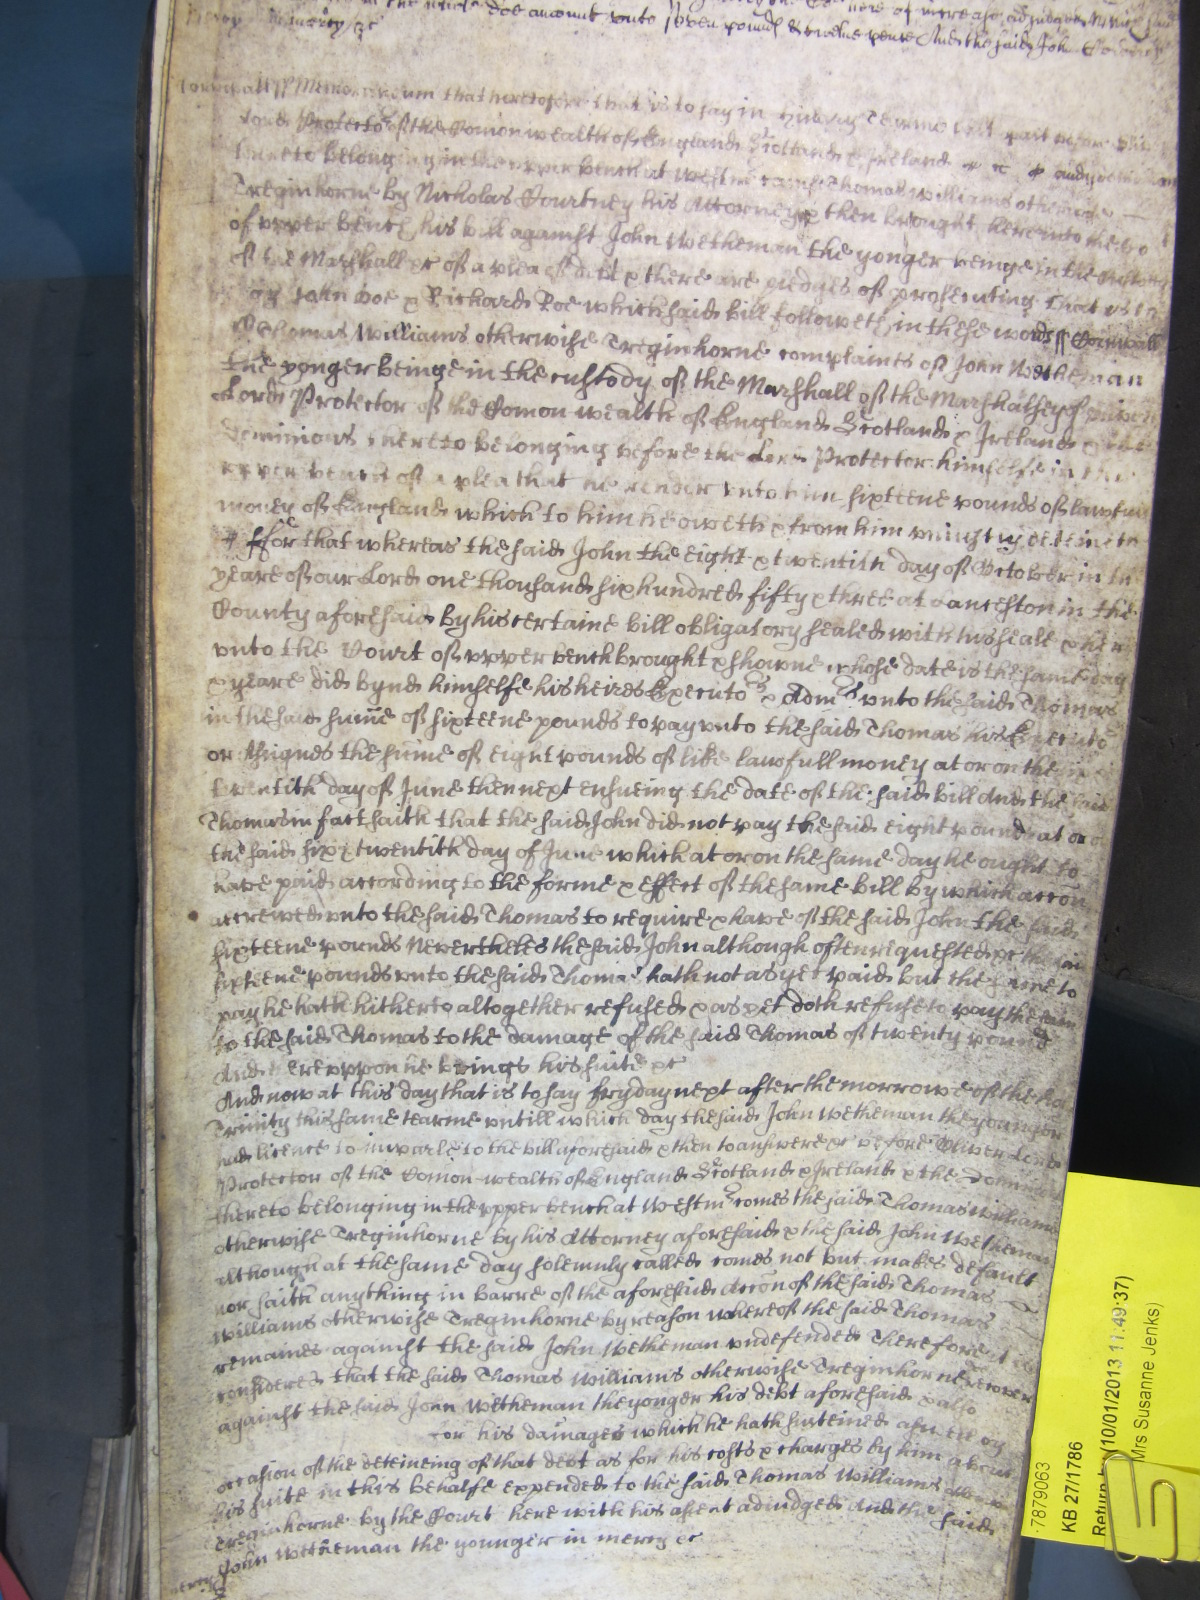 doe amount unto seven pounds & twelve pence And the said John
mercy in mercy &c
Cornwall ss Memorandum that heretofore that is to say in Hillary Tearme last past before Oliver
Lord Protector of the Comon wealth of England Scotland & Ireland & &c &
thereto belonging in the upper bench at Westmr came Thomas Williams otherwise
Treginhorne by Nicholas Courtney his Attorney & then brought here into the Co
of upper bench his bill against John Wetheman the yonger beinge in the Custody
of the Marshall &c of a plea of debt & there are pledges of prosecuting that is to
say John Doe & Richard Roe which said bill followeth in these words ss Cornwall
Thomas Williams otherwise Treginhorne complaines of John Wetheman
the yonger beinge in the custody of the Marshall of the Marshalsey of Oliver
Lord Protector of the Comon wealth of England Scotland & Ireland &
Dominions thereto belonging before the Lord Protector himselfe in the
upper bench of a plea that he render unto him sixteene pounds of lawfull
money of England which to him he oweth & from him uniustly deteineth
& ffor that whereas the said John the eight & twentith day of October in the
yeare of our Lord one thousand six hundred fifty & three at Lanceston in the
County aforesaid by his certaine bill obligatory sealed with his seale & here
unto the Court of upper bench brought & showne whose date is the same day
& yeare did bynd himselfe his heires Executors & Admrs unto the said Thomas
in the said sume of sixteene pounds to pay unto the said Thomas his Executors
or Assignes the sume of eight pounds of like lawfull money at or on the six &
twentith day of June then next ensueing the date of the said bill And the said
Thomas in fact saith that the said John did not pay the said eight pounds at or o
the said six & twentith day of June which at or on the same day he ought to
have paid according to the forme & effect of the same bill by which accon
accrewed unto the said Thomas to require & have of the said John the said
sixteene pounds Neverthelesse the said John although often requested &c the said
sixteene pounds unto the said Thomas hath not as yet paid but the same to
pay he hath hitherto altogether refused & as yet doth refuse to pay the same
to the said Thomas to the damage of the said Thomas of twenty pounds
And thereuppon he brings his suite &c
And now at this day that is to say fryday next after the morrowe of the holy
Trinity this same tearme untill which day the said John Wetheman the younger
had licence to imparle to the bill aforesaid & then to answere &c before Oliver Lord
Protector of the Comon-wealth of England Scotland & Ireland & the Dominions
thereto belonging in the upper bench at Westmr comes the said Thomas Williams
otherwise Treginhorne by his Attorney aforesaid & the said John Wetheman
although at the same day solemnly called comes not but makes default
nor saith anything in barre of the aforesaid accon of the said Thomas
Williams otherwise Treginhorne by reason whereof the said Thomas
remaines against the said John Wetheman undefended Therefore it is
considered that the said Thomas Williams otherwise Treginhorne recover
against the said John Wetheman the yonger his debt aforesaid & also
for his damages which he hath susteined aswell by
occasion of the deteineing of that debt as for his costs & charges by him about
his suite in this behalfe expended to the said Thomas Williams otherwise
Treginhorne by the Court here with his assent adiudged And the said
John Wetheman the younger in mercy &c
mercy
7879063
KB 27/1786
Return to (10/01/2013 11:49:37)
Mrs Susanne Jenks)